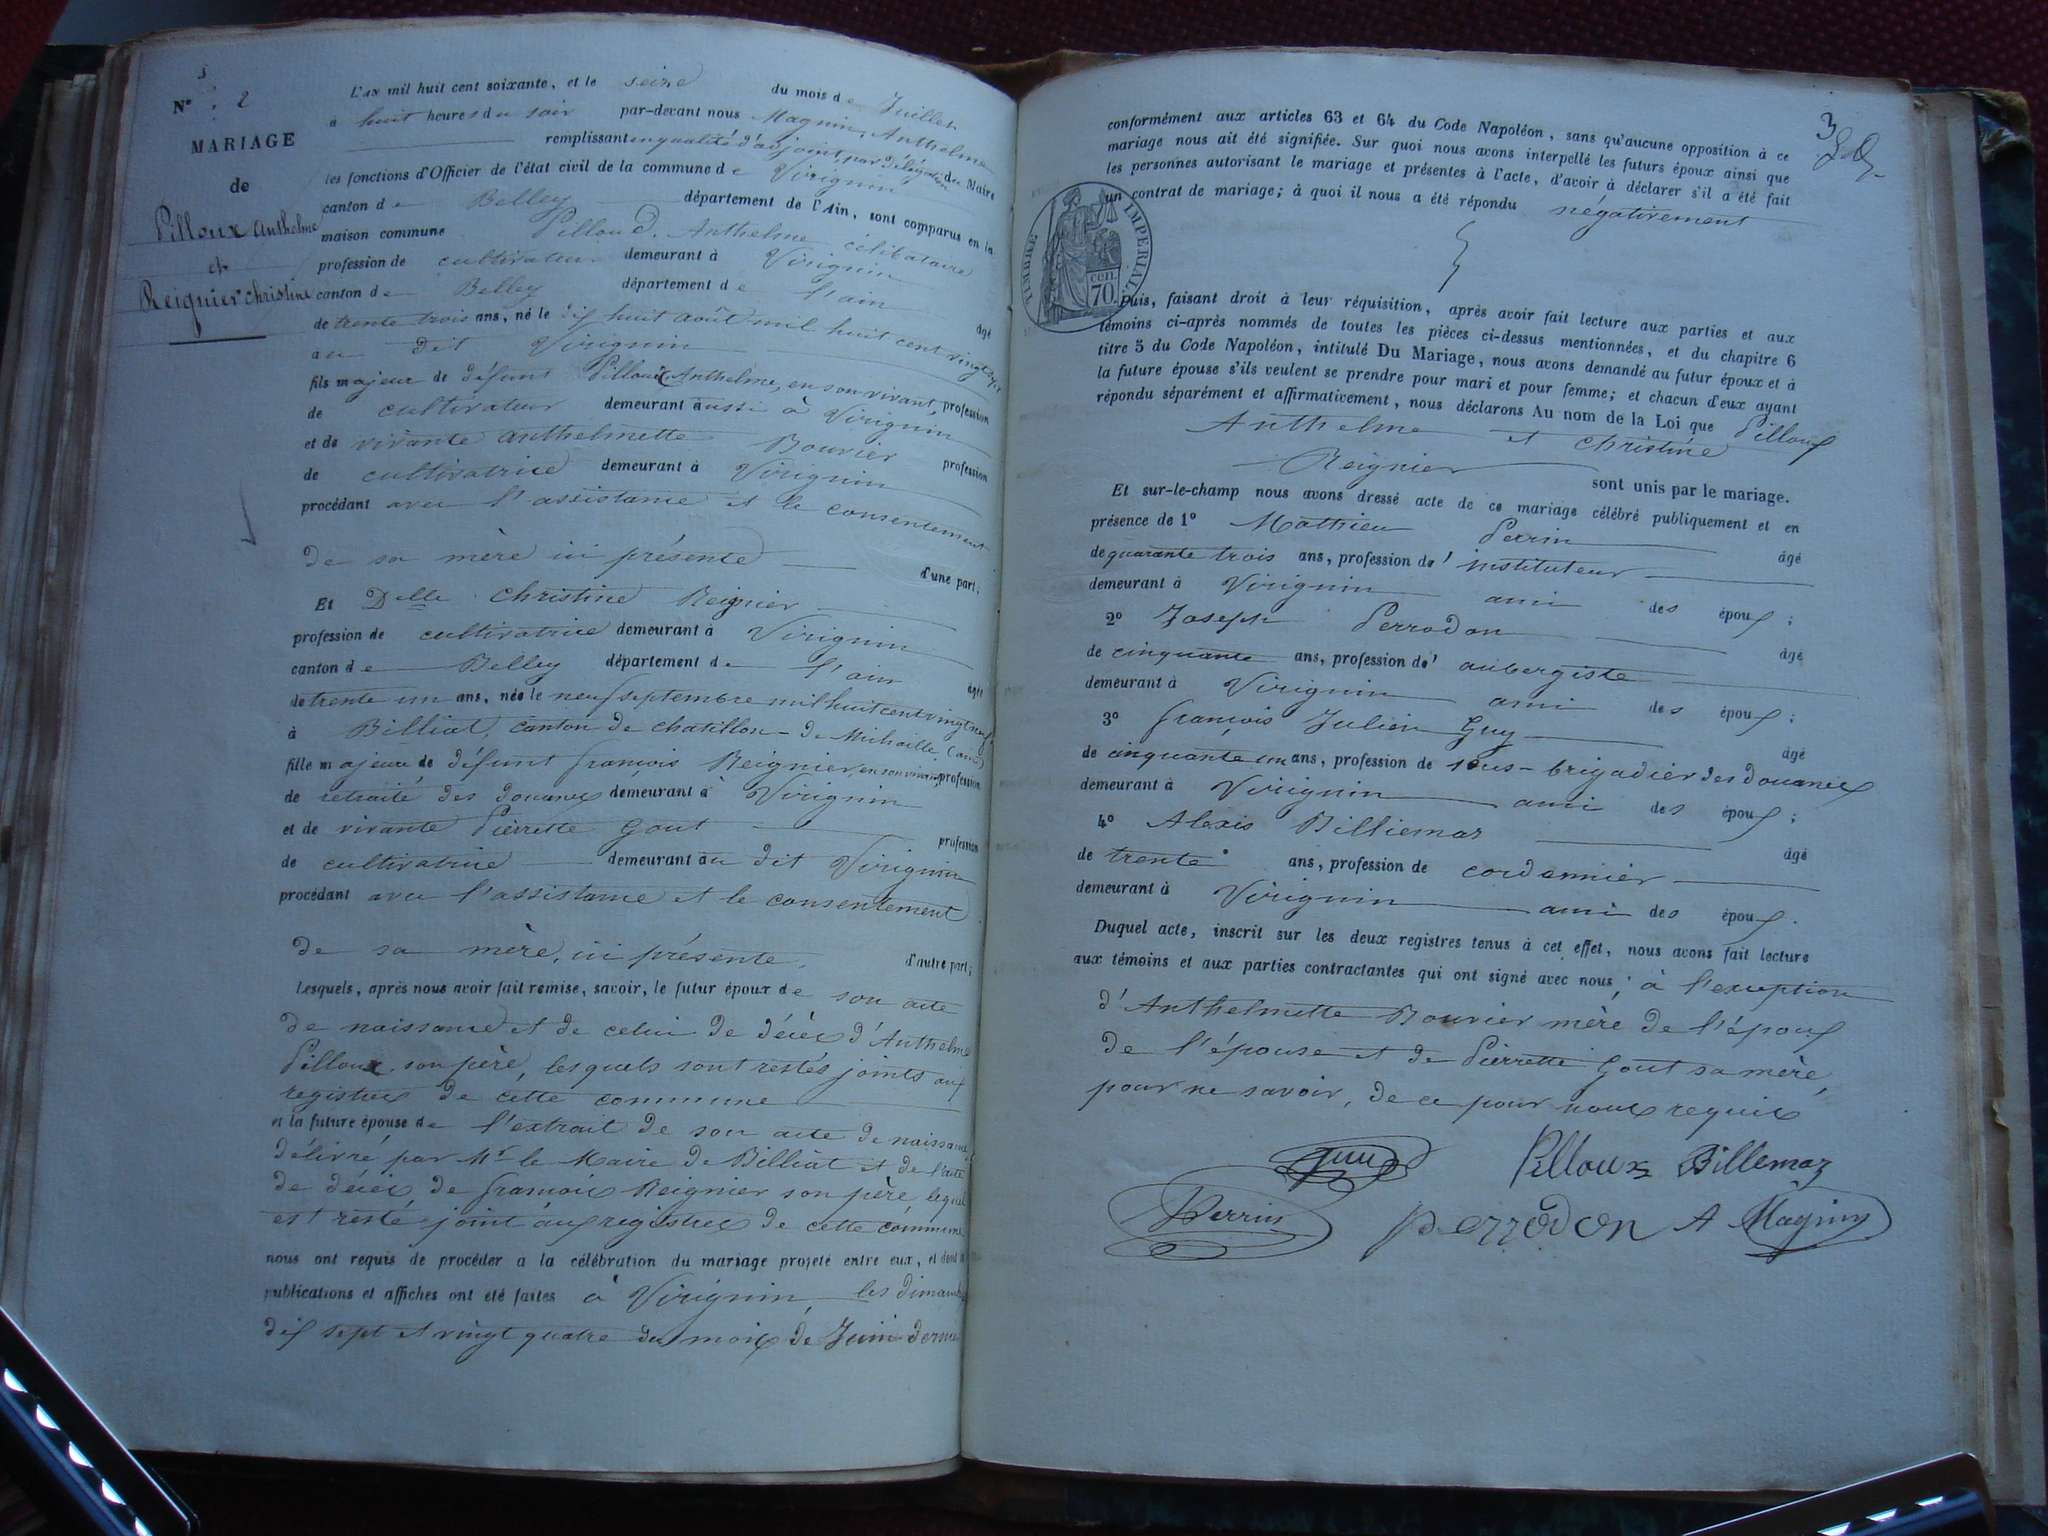 N° 2
MARIAGE
de
Pilloux Anthelme
et
Reignier Christine
L'AN mil huit cent soixante, et le seize du mois de Juillet
à huit heures du soir par-devant nous Magnin, Anthelme
remplissant en qualité d'adjoint par délégation du Maire
les fonctions d'Officier de l'état civil de la commune de Virignin
canton de Belley département de l'Ain, sont comparus en la
maison commune Pilloud, Anthelme célibataire
profession de cultivateur demeurant à Virignin
canton de Belley département de l'ain âgé
de trente trois ans, né le dix huit août mil huit cent vingt sept
au dit Virignin
fils majeur de défunt Pilloux Anthelme, en son vivant, profession
de cultivateur demeurant aussi à Virignin
et de vivante anthelmette Bouvier profession
de cultivatrice demeurant à Virignin
procédant avec l'assistance et le consentement
de sa mère ici présente d'une part,
Et Delle Christine Reignier
profession de cultivatrice demeurant à Virignin
canton de Belley département de l'ain âgée
de trente un ans, née le neuf septembre mil huit cent vingt neuf
à Billiat, canton de Chatillon-de Michaille (ain)
fille majeure de défunt françois Reignier, en son vivant, profession
de retraité des douanes demeurant à Virignin
et de vivante Pierrette Gout profession
de cultivatrice demeurant au dit Virignin
procédant avec l'assistance et le consentement
de sa mère, ici présente, d'autre part;
Lesquels, après nous avoir fait remise, savoir, le futur époux de son acte
de naissance et de celui de décès d'Anthelme
Pilloux son père, lesquels sont restés joints aux
registres de cette commune
et la future épouse de l'extrait de son acte de naissance
délivré par Mr le Maire de Billiat et de l'acte
de décès de françois Reignier son père lequel
est resté joint aux registres de cette commune
nous ont requis de procéder à la célébration du mariage projeté entre eux, et dont les
publications et affiches ont été faites à Virignin les dimanches
dix sept et vingt quatre du mois de Juin dernier
3
conformément aux articles 63 et 64 du Code Napoléon, sans qu'aucune opposition à ce
mariage nous ait été signifiée. Sur quoi nous avons interpellé les futurs époux ainsi que
les personnes autorisant le mariage et présentes à l'acte, d'avoir à déclarer s'il a été fait
un contrat de mariage; à quoi il nous a été répondu négativement
TIMBRE IMPERIAL
70 cen.
Puis, faisant droit à leur réquisition, après avoir fait lecture aux parties et aux
témoins ci-après nommés de toutes les pièces ci-dessus mentionnées, et du chapitre 6
titre 5 du Code Napoléon, intitulé Du Mariage, nous avons demandé au futur époux et à
la future épouse s'ils veulent se prendre pour mari et pour femme; et chacun d'eux ayant
répondu séparément et affirmativement, nous déclarons Au nom de la Loi que Pilloux
Anthelme et Christine
Reignier sont unis par le mariage.
Et sur-le-champ nous avons dressé acte de ce mariage célébré publiquement et en
présence de 1° Mathieu Perrin âgé
de quarante trois ans, profession d'instituteur
demeurant à Virignin ami des époux;
2° Joseph Perrodon âgé
de cinquante ans, profession d'aubergiste
demeurant à Virignin ami des époux;
3° françois Julien Guy âgé
de cinquante un ans, profession de sous-brigadier des douanes
demeurant à Virignin ami des époux;
4° Alexis Billiemaz âgé
de trente ans, profession de cordonnier
demeurant à Virignin ami des époux.
Duquel acte, inscrit sur les deux registres tenus à cet effet, nous avons fait lecture
aux témoins et aux parties contractantes qui ont signé avec nous, à l'exception
d'Anthelmette Bouvier mère de l'époux
de l'épouse et de Pierrette Gout sa mère,
pour ne savoir, de ce pour nous requis
Guy Pilloux Billemaz
Perrin perrodon A Magnin